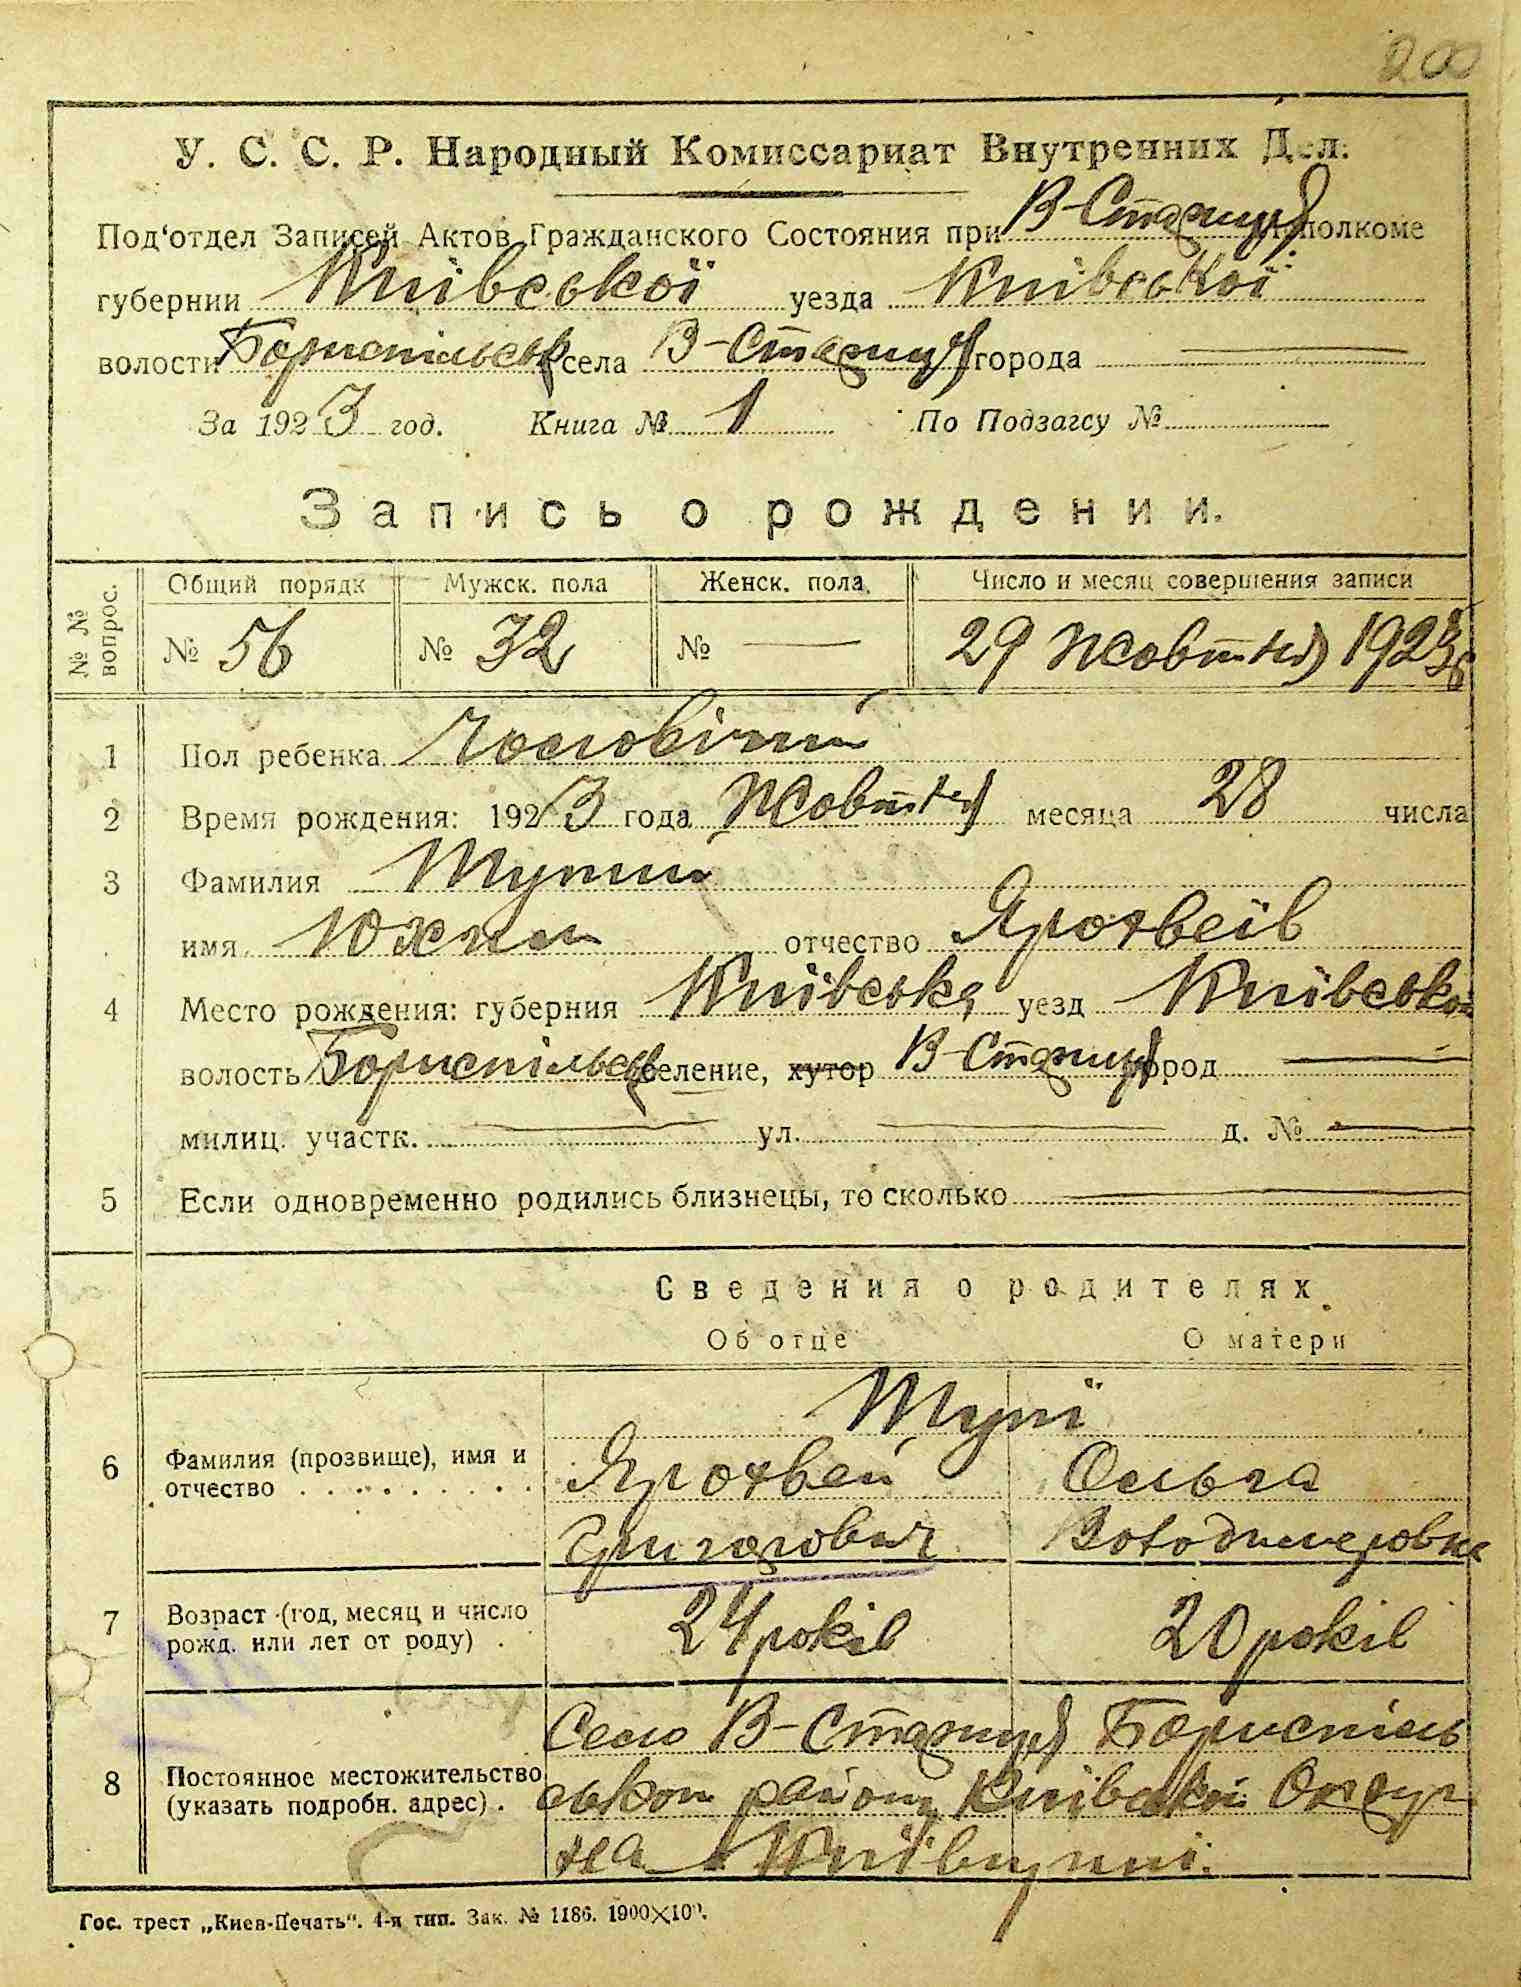 200
У. С. С. Р. Народный Комиссариат Внутренних Дел.
Под'отдел Записей Актов Гражданского Состояния при В-Стариця Исполкоме
губернии Київської уезда Київської
волости Бориспільськ села В-Стариця города —
За 1923 год. Книга № 1 По Подзагсу №
Запись о рождении.
№ № вопрос. Общий порядк Мужск. пола Женск. пола. Число и месяц совершения записи
№ 56 № 32 № — 29 Жовтня 1923
1 Пол ребенка Чоловічий
2 Время рождения: 1923 года Жовтня месяца 28 числа
3 Фамилия
имя Юхим отчество
4 Место рождения: губерния Київська уезд Київської
волость Бориспільськ селение, хутор В-Стариця город —
милиц. участк. — ул. — д. № —
5 Если одновременно родились близнецы, то сколько —
Сведения о родителях.
Об отце О матери
6 Фамилия (прозвище), имя и отчество
Ольга
Григорович Володимеровна
7 Возраст (год, месяц и число рожд. или лет от роду) . 24 років 20 років
8 Постоянное местожительство (указать подробн. адрес) .
Село В-Стариця Бориспіль
ського району Київської Округи
на Київщині.
Гос. трест „Киев-Печать“. 4-я тип. Зак. № 1186. 1900×100.